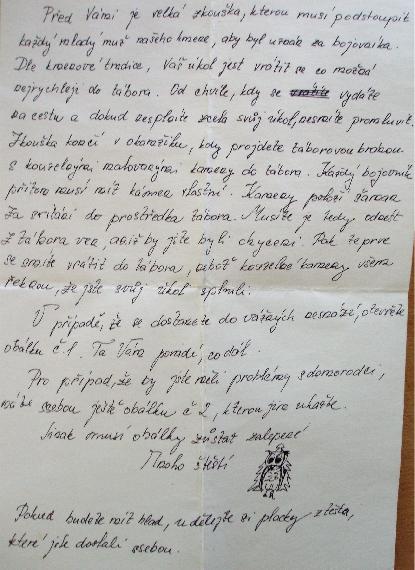 Před Vámi je velká zkouška, kterou musí podstoupit
každý mladý muž našeho kmene, aby byl uznán za bojovníka.
Dle kmenové tradice, Váš úkol jest vrátit se co možná
nejrychleji do tábora. Od chvíle, kdy se vydáte
na cestu a dokud nesplníte zcela svůj úkol, nesmíte promluvit.
Zkouška končí v okamžiku, kdy projdete táborovou branou
s kouzelnými malovanými kameny do tábora. Každý bojovník
přitom musí mít kámen vlastní. Kameny položí šaman
za svítání do prostředka tábora. Musíte je tedy odnést
z tábora ven, aniž by jste byli chyceni. Pak teprve
se smíte vrátit do tábora, neboť kouzelné kameny všem
řeknou, že jste svůj úkol splnili.
V případě, že se dostanete do vážných nesnází, otevřete
obálku č.1. Ta Vám poradí, co dál.
Pro případ, že by jste měli problémy s domorodci,
máte sebou ještě obálku č 2, kterou jim ukažte.
Jinak musí obálky zůstat zalepené
Mnoho štěstí
Pokud budete mít hlad, udělejte si placky z těsta,
které jste dostali sebou.